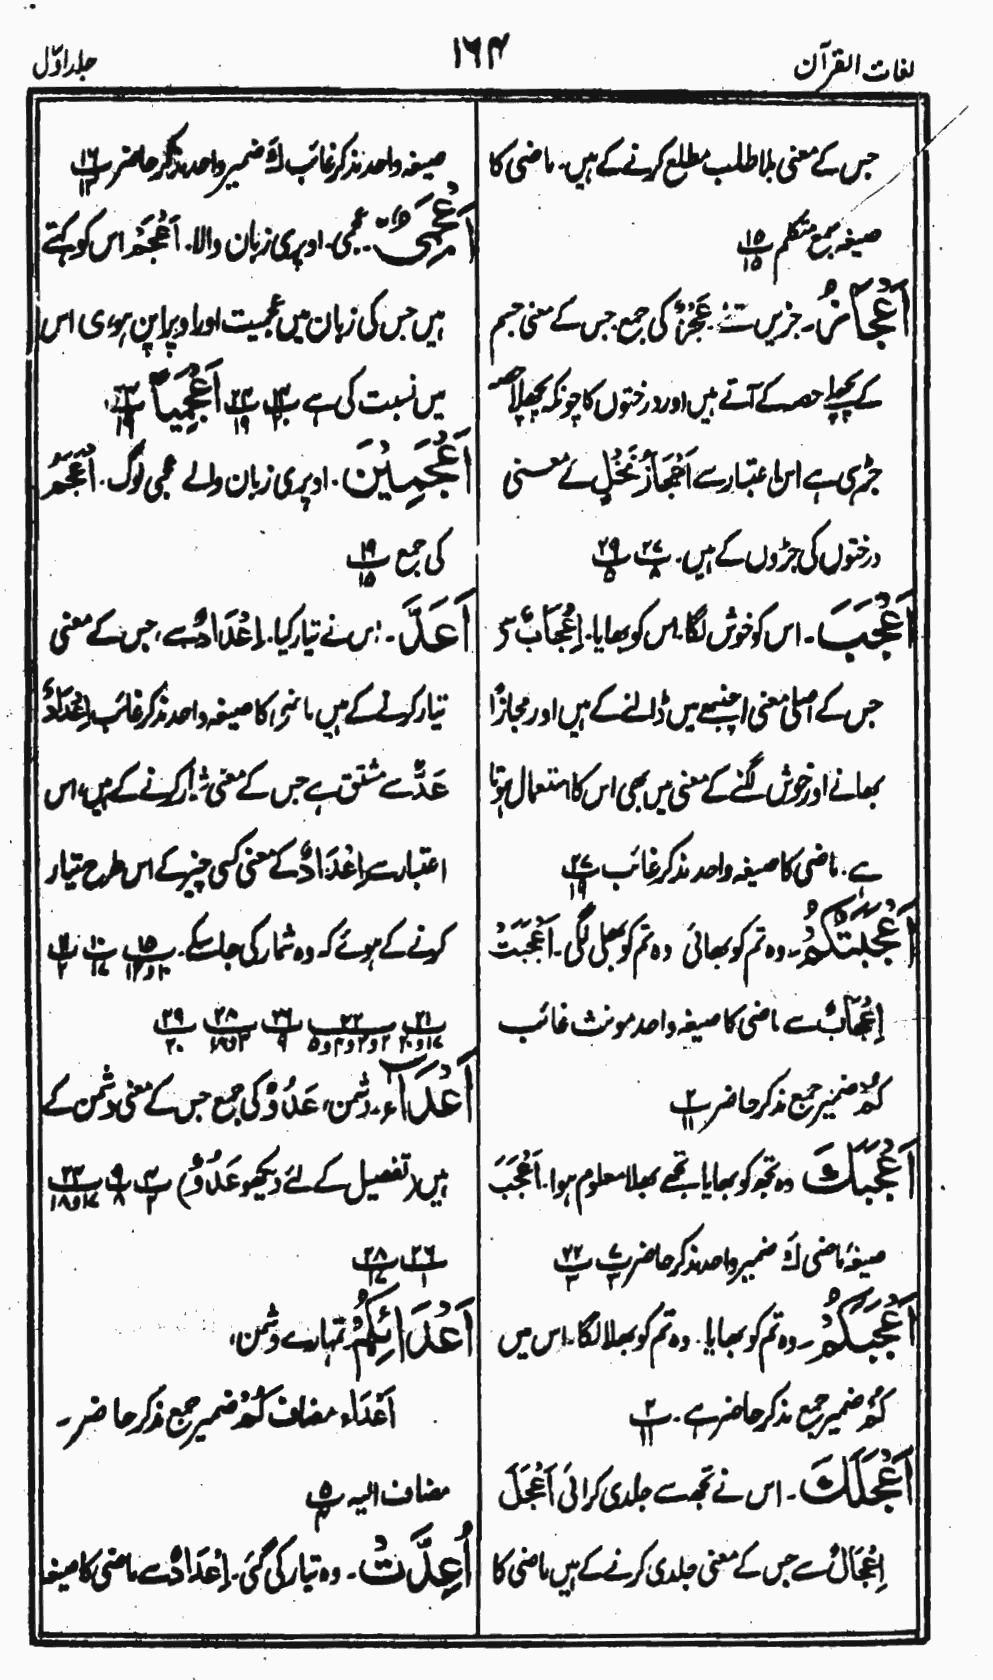 لغات القرآن
۱۶۴
جلد اوّل
جس کے معنی بلا طلب مطلع کرنے کے ہیں۔ ماضی کا
صیغہ جمع متکلم ۱۵ ۱۵
اَعْجَازُ۔ جڑیں تنے۔ عَجُزٌ کی جمع۔ جس کے معنی جسم
کے پچھلے حصہ کے آتے ہیں اور درختوں کا چونکہ پچھلا حصہ
جڑ ہی ہے اس اعتبار سے اَعْجَازُ نَخْلٍ کے معنی
درختوں کی جڑوں کے ہیں۔ ۲۷ ۸ ۲۹ ۵
اَعْجَبَ۔ اس کو خوش لگا۔ اس کو بھایا۔ اِعْجَابٌ سے
جس کے اصلی معنی اچنبھے میں ڈالنے کے ہیں اور مجازًا
بھانے اور خوش لگنے کے معنی میں بھی اس کا استعمال ہوتا
ہے۔ ماضی کا صیغہ واحد مذکر غائب ۲۷ ۱۹
اَعْجَبَتْكُمْ۔ وہ تم کو بھائی وہ تم کو بھلی لگی۔ اَعْجَبَتْ
اِعْجَابٌ سے ماضی کا صیغہ واحد مونث غائب
كُمْ ضمیر جمع مذکر حاضر ۲ ۱۱
اَعْجَبَكَ وہ تجھ کو بھایا تجھے بھلا معلوم ہوا۔ اَعْجَبَ
صیغہ ماضی كَ ضمیر واحد مذکر حاضر ۷ ۳ ۲۲ ۳
اَعْجَبَكُمْ۔ وہ تم کو بھایا۔ وہ تم کو بھلا لگا۔ اس میں
كُمْ ضمیر جمع مذکر حاضر ہے۔ ۲ ۱۱
اَعْجَلَكَ۔ اس نے تجھ سے جلدی کرائی اَعْجَلَ
اِعْجَالٌ سے جس کے معنی جلدی کرنے کے ہیں ماضی کا
صیغہ واحد مذکر غائب كَ ضمیر واحد مذکر حاضر ۱۶ ۱۳
اَعْجَمِیٌّ۔ عجمی۔ اوپری زبان والا۔ اَعْجَمُ اس کو کہتے
ہیں جس کی زبان میں عجمیت اور اوپراپن ہو، ی اس
میں نسبت کی ہے ۱۴ ۲۰ ۲۴ ۱۹ اَعْجَمِیًّا ۲۴ ۱۹
اَعْجَمِیْنَ۔ اوپری زبان والے عجمی لوگ۔ اَعْجَمُ
کی جمع ۱۹ ۱۵
اَعَدَّ۔ اس نے تیار کیا۔ اِعْدَادٌ سے، جس کے معنی
تیار کرنے کے ہیں ماضی کا صیغہ واحد مذکر غائب اِعْدَادٌ
عَدٌّ سے مشتق ہے جس کے معنی شمار کرنے کے ہیں، اس
اعتبار سے اِعْدَادٌ کے معنی کسی چیز کے اس طرح تیار
کرنے کے ہوئے کہ وہ شمار کی جا سکے۔ ۱۵ ۱۰ ۱۷ ۱۱ ۲
۲۱ ۱۷و۲۰ ۲۲ ۲و۳و۴و۵ ۲۶ ۹ ۲۸ ۳و۱۸ ۲۹ ۲۰
اَعْدَآءً۔ دشمن، عَدُوٌّ کی جمع جس کے معنی دشمن کے
ہیں (تفصیل کے لئے دیکھو عَدُوٌّ) ۴ ۲ ۹ ۸ ۲۴ ۱۷و۱۸
۲۶ ۱ ۲۸ ۱۷
اَعْدَائِكُمْ تمہارے دشمن،
اَعْدَاء مضاف كُمْ ضمیر جمع مذکر حاضر۔
مضاف الیہ ۵ ۴
اُعِدَّتْ۔ وہ تیار کی گئی۔ اِعْدَادٌ سے ماضی کا صیغہ